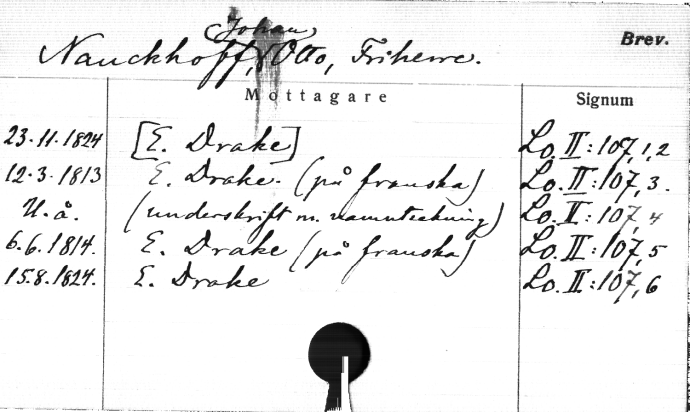 Johan
Nauckhoff, Otto, Friherre.
Brev.
Mottagare Signum
23.11.1824 [E. Drake] Lo. II:107,1,2
12.3.1813 E. Drake. (på franska) Lo. II:107,3.
U.å. (underskrift m. namnteckning) Lo. II:107,4
6.6.1814. E. Drake (på franska) Lo. II:107,5
15.8.1824. E. Drake Lo. II:107,6